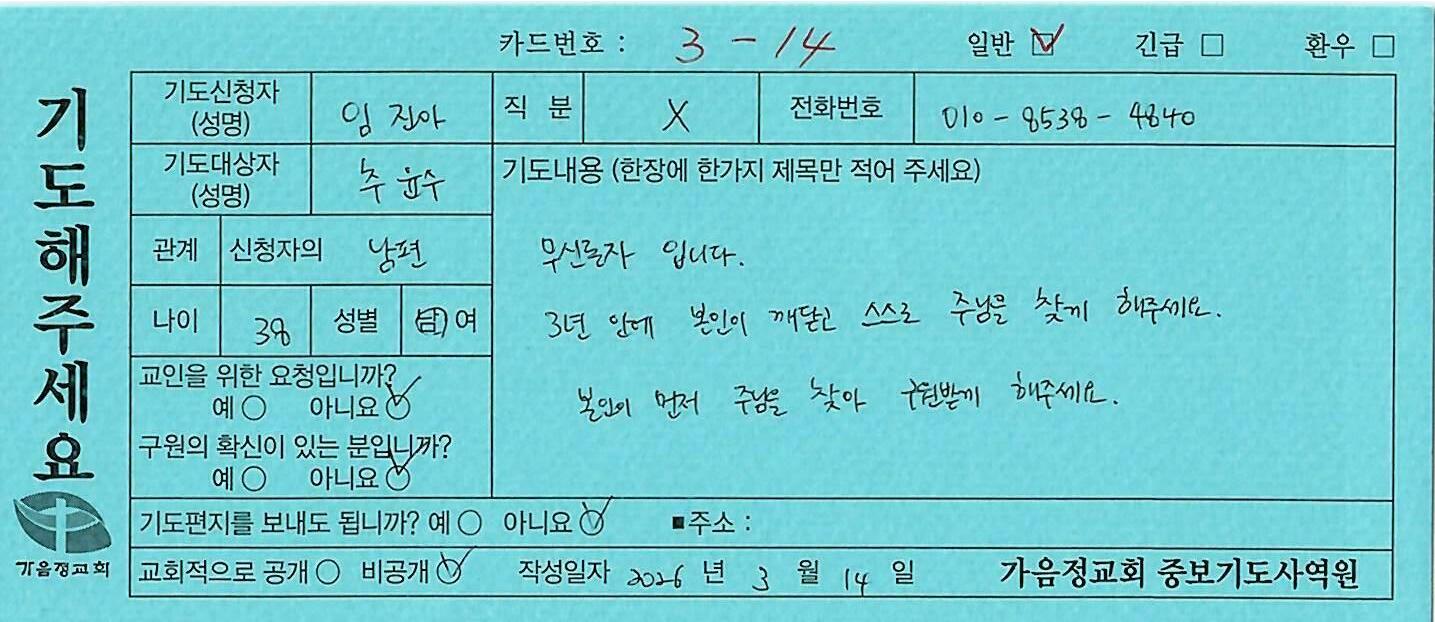 카드번호 : 3 - 14 일반 ☑ 긴급 □ 환우 □
기도해주세요
기도신청자 (성명) 임 진아 직 분 X 전화번호 010 - 8538 - 4840
기도대상자 (성명) 추 윤수
관계 신청자의 남편
나이 38 성별 남 여
교인을 위한 요청입니까?
예 ○ 아니요 ☑
구원의 확신이 있는 분입니까?
예 ○ 아니요 ☑
기도내용 (한장에 한가지 제목만 적어 주세요)
무신론자 입니다.
3년 안에 본인이 깨닫고 스스로 주님을 찾게 해주세요.
본인이 먼저 주님을 찾아 구원받게 해주세요.
기도편지를 보내도 됩니까? 예 ○ 아니요 ☑ ■주소 :
교회적으로 공개 ○ 비공개 ☑ 작성일자 2026 년 3 월 14 일 가음정교회 중보기도사역원
가음정교회